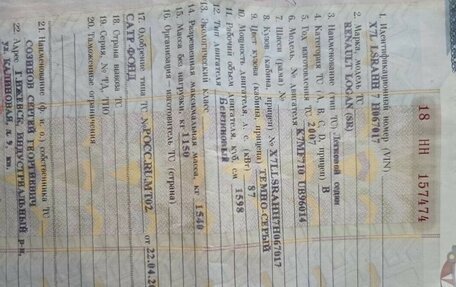 18 НН 157474
1. Идентификационный номер (VIN)
X7LLSRAHH7H067017
2. Марка, модель ТС
RENAULT LOGAN (SR)
3. Наименование (тип ТС) Легковой седан
4. Категория ТС (A, B, C, D, прицеп) B
5. Год изготовления ТС 2007
6. Модель, № двигателя K7MF710 UB96014
7. Шасси (рама) №
8. Кузов (кабина, прицеп) № X7LLSRAHH7H067017
9. Цвет кузова (кабины, прицепа) ТЕМНО-СЕРЫЙ
10. Мощность двигателя, л. с. (кВт) 87
11. Рабочий объем двигателя, куб. см 1598
12. Тип двигателя Бензиновый
13. Экологический класс
14. Разрешенная максимальная масса, кг 1540
15. Масса без нагрузки, кг 1150
16. Организация - изготовитель ТС (страна)
17. Одобрение типа ТС № РОСС.RU.МТ02. от 22.04.20
САТР ФОНД
18. Страна вывоза ТС
19. Серия, № ТД, ТПО
20. Таможенные ограничения
21. Наименование (ф. и. о.) собственника ТС
СОЗИНОВ СЕРГЕЙ ГЕОРГИЕВИЧ
22. Адрес Г ИЖЕВСК, ИНДУСТРИАЛЬНЫЙ р-н,
ул. КАЛИНОВАЯ, д. 9, кв.